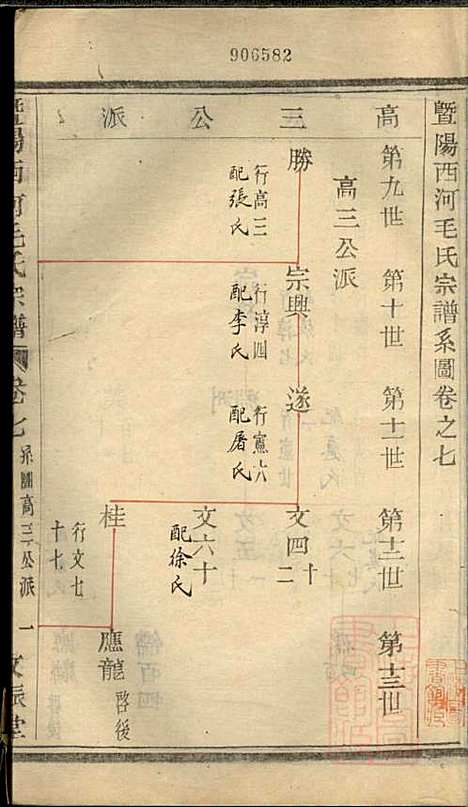 906582
暨陽西河毛氏宗譜系圖卷之七
高三公派
第九世
第十世
第十一世
第十二世
第十三世
高三公派
勝
行高三
配張氏
宗興
行淳四
配李氏
遂
行憲六
配屠氏
文四十二
文六十
配徐氏
桂
行文七十七
應龍
啓後
暨陽西河毛氏宗譜
卷之七
系圖高三公派
一
文辰堂